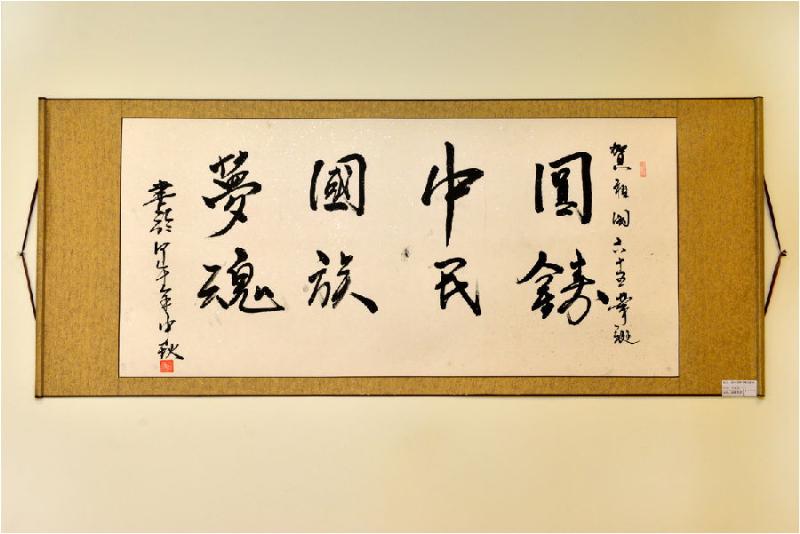 賀祖國六十五華誕
圓中國夢
鑄民族魂
甲午年中秋